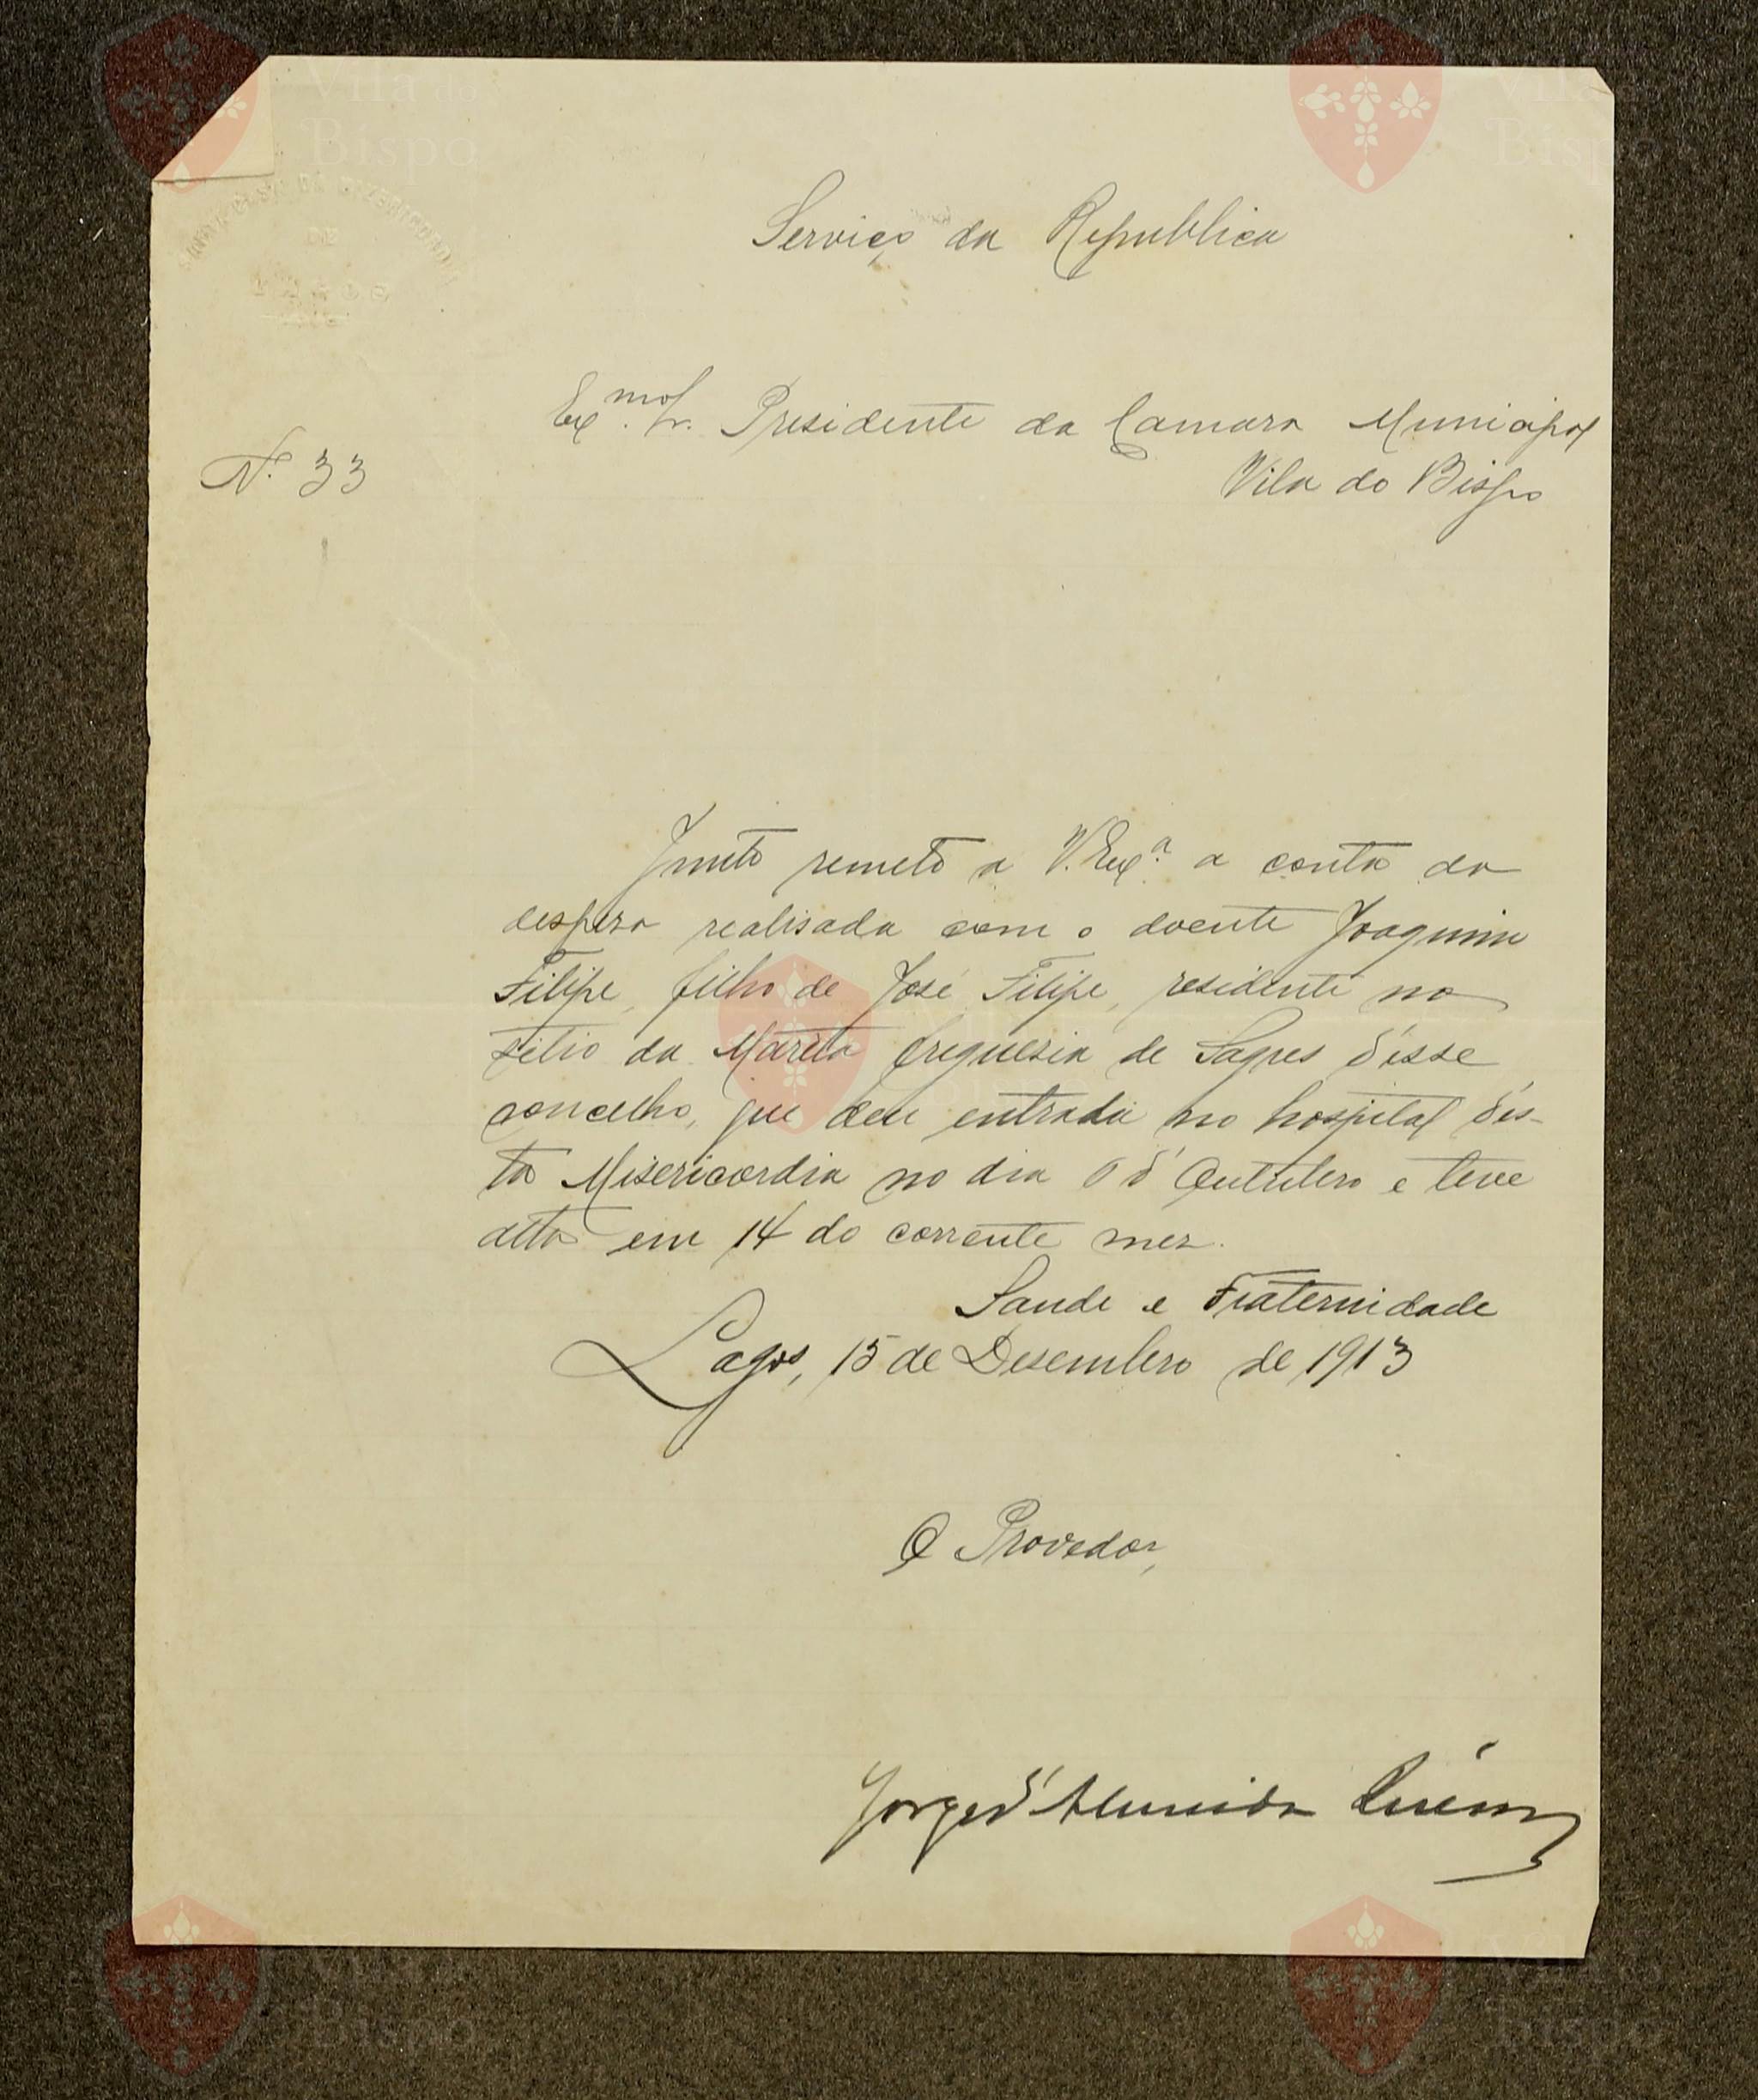 Vila do
Bispo
Vila
Bispo
SANTA CASA DA MISERICORDIA
DE
LAGOS
Serviço da Republica
Ex.mo Sr. Presidente da Camara Municipal
Vila do Bispo
N.º 33
Junto remeto a V. Ex.ª a conta da
despesa realisada com o doente Joaquim
Filipe, filho de José Filipe, residente no
sitio da Mareta freguesia de Sagres d'esse
concelho, que deu entrada no hospital d'es-
ta Misericordia no dia d'Outubro e teve
alta em 14 do corrente mez.
Saude e Fraternidade
Lagos, 15 de Desembro de 1913
O Provedor,
Jorge d'Almeida